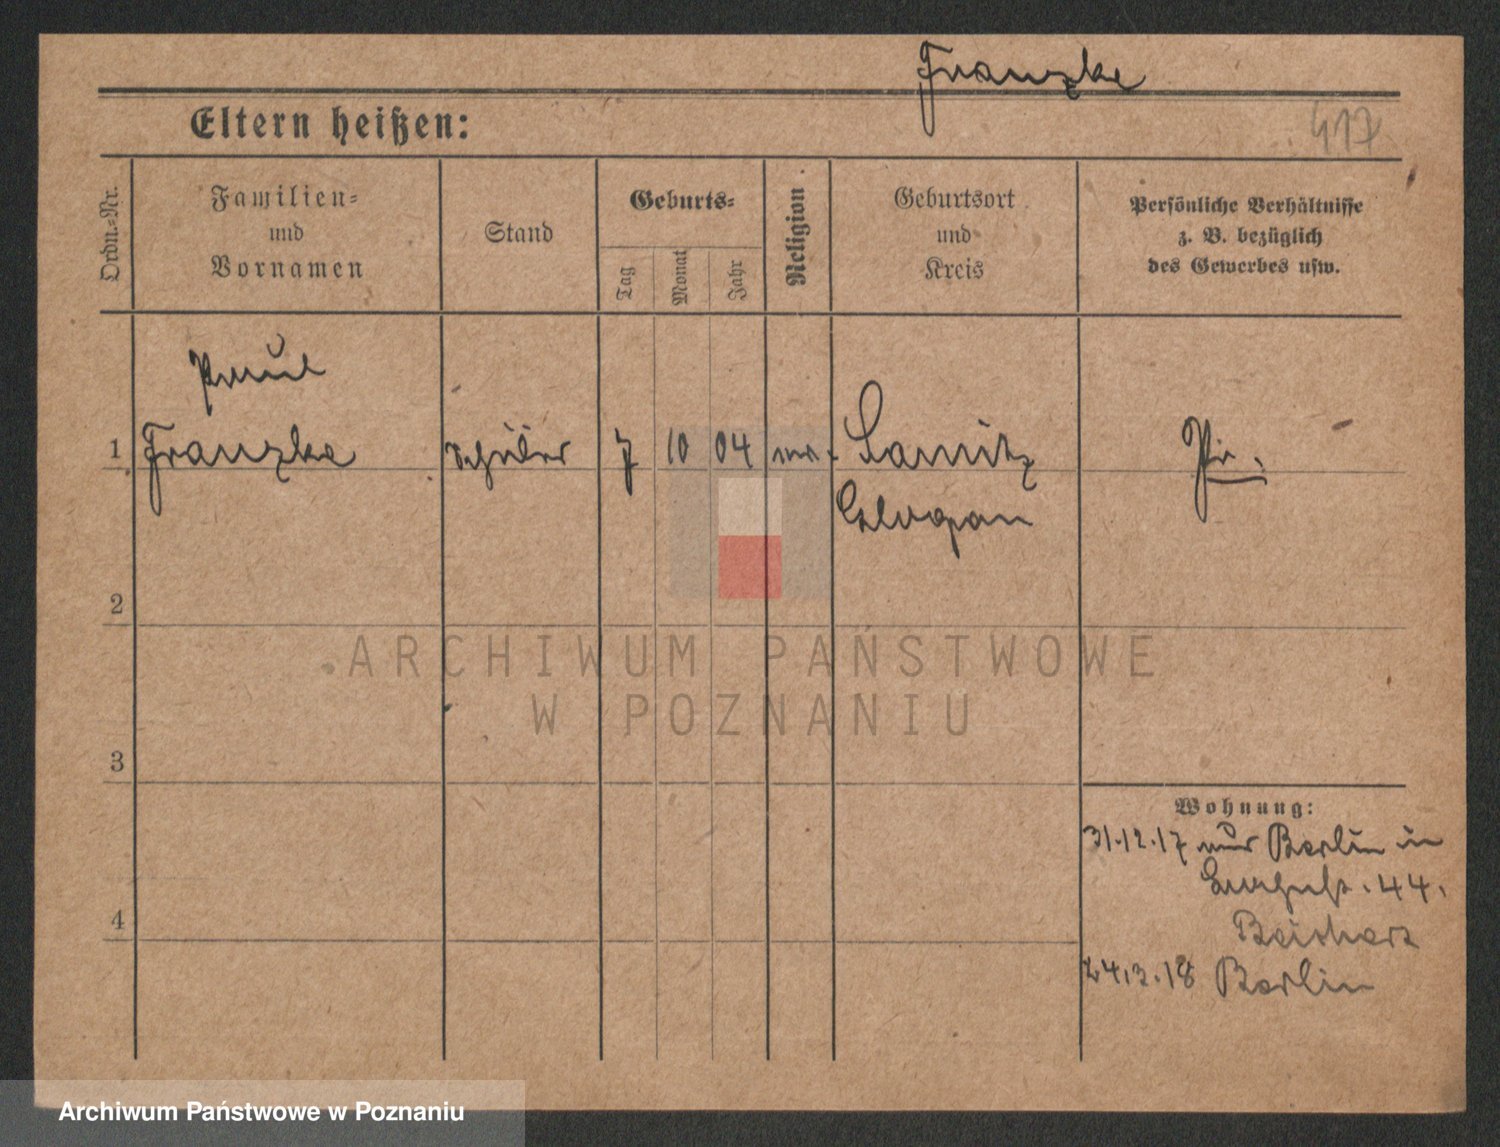 Franzke
Eltern heißen:
417
Ordn.-Nr.
Familien-
und
Vornamen
Stand
Geburts-
Tag
Monat
Jahr
Religion
Geburtsort
und
Kreis
Persönliche Verhältnisse
z. B. bezüglich
des Gewerbes usw.
Paul
1 Franzke Schüler 7 10 04
Glogau
Pr.
2
ARCHIWUM PAŃSTWOWE
W POZNANIU
3
Wohnung:
31.12.17 Berlin in
44.
4
24.3.18 Berlin
Archiwum Państwowe w Poznaniu